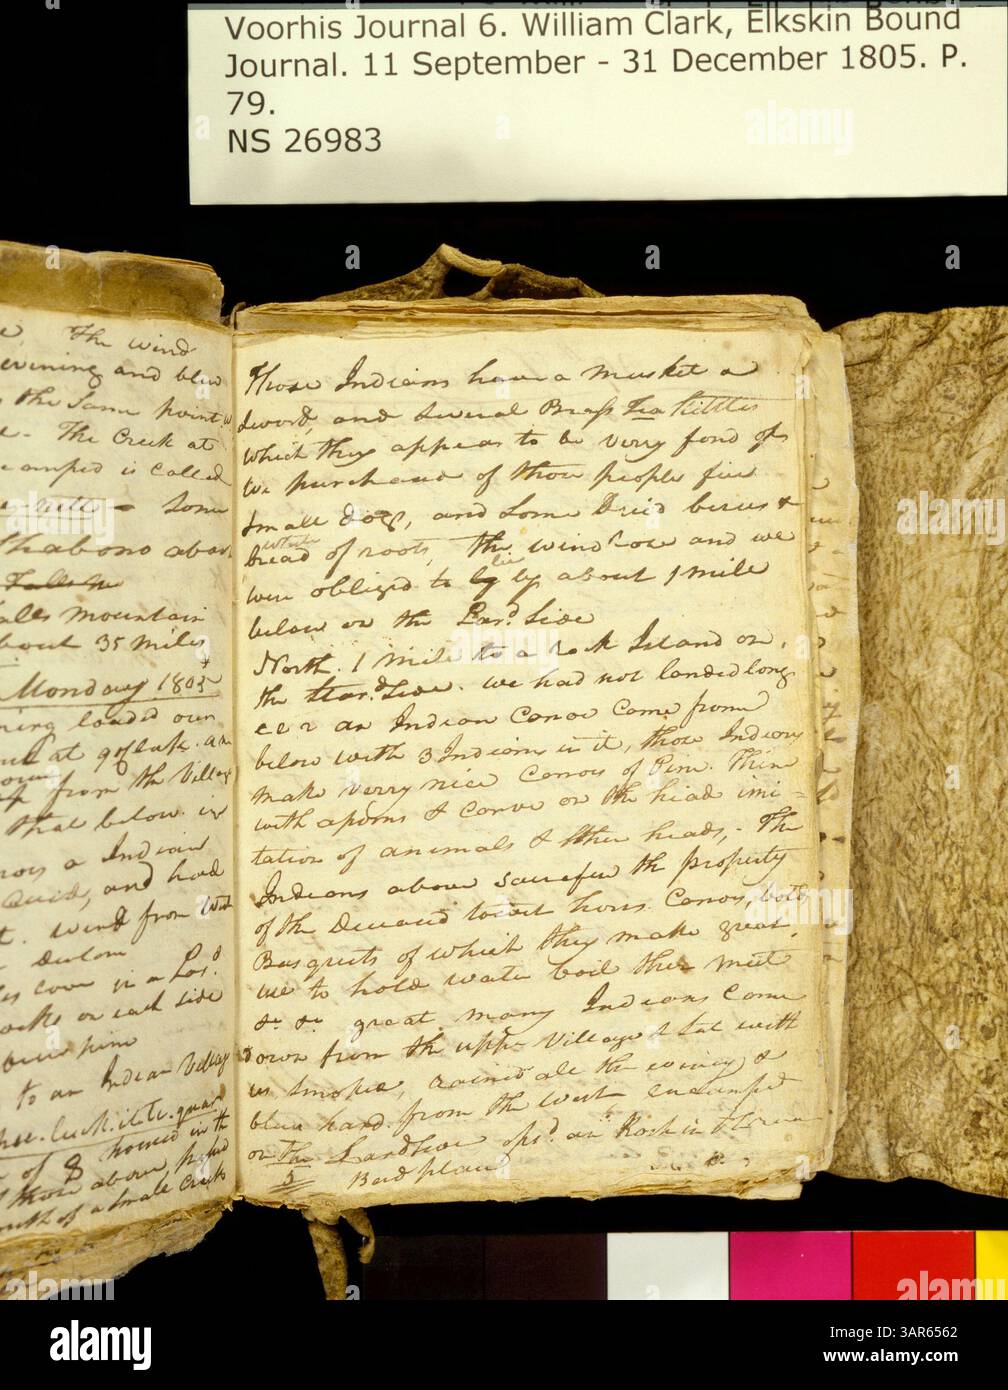 Voorhis Journal 6. William Clark, Elkskin Bound
Journal. 11 September - 31 December 1805. P.
79.
NS 26983
The wind
evening and blew
the Same point
The Creek at
camped is Called
Some
abov
Falls m
alls mountain
bout 35 miles
Monday 1805
ning loaded our
from the Village
that below in
a Indian
and had
wind from West
cover in a Lard
ocks on each side
to an Indian Village
of 8 houses in the
those above,
outh of a Small Creek
Those Indians have a musket a
Sword, and Several Brass Tea kittles
which they appear to be verry fond of
we purchased of those people five
Small dogs, and Some Dried beries &
white
bread of roots, the wind rose and we
lie
were obliged to by about 1 mile
below on the Lard. Side
North. 1 mile to a rock Island on
the Stard. Side. we had not landed long
eer an Indian Canoe Came from
below with 3 Indians in it, those Indians
make verry nice Canoes of Pine. Thin
with aporns & Carve on the head imi =
tation of animals & other heads, - The
Indians above Sacrefise the property
of the Deceased towit horses Canoes, bolds
Basquets of which they make great
use to hold water boil their meet
&c. &c. great many Indians Came
down from the uppr. Village & Sat with
us, Smoked, rained all the evining &
blew hard from the West encamped
on the Lard Side opsd. an Rock in a Verry
Bad place